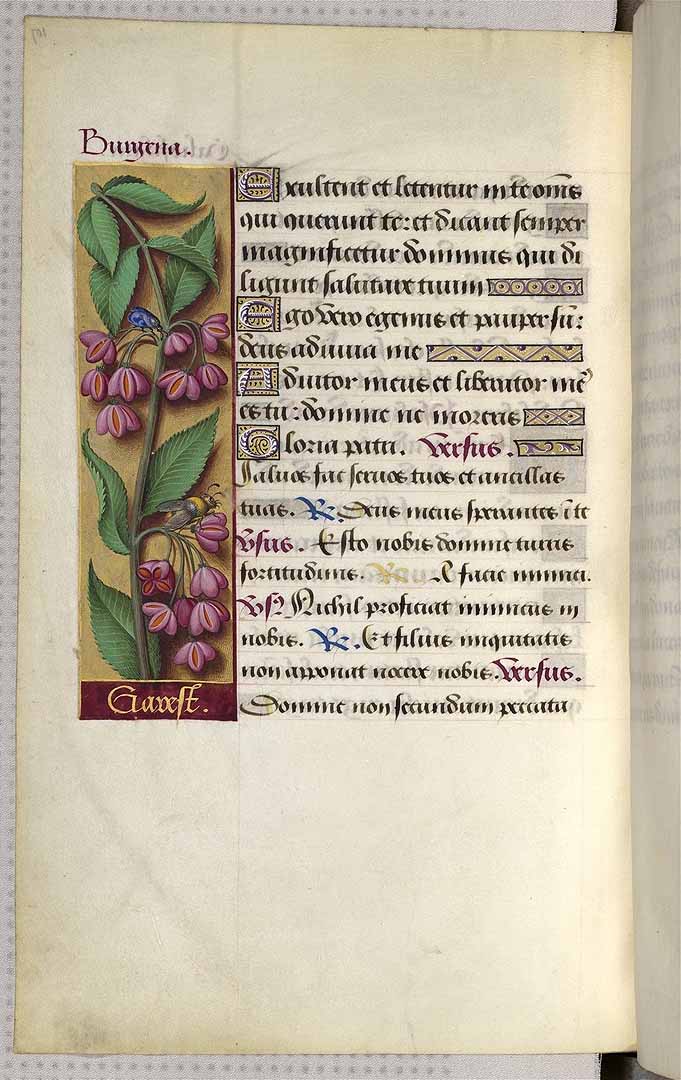 Burgena.
Exultent et letentur in te om̄s
qui querunt te: et dicant semper
magnificetur dominus qui di
ligunt salutare tuum
Ego vero egenus et pauper sū:
deus adiuva me
Adiutor meus et liberator me᷒
es tu: domine ne moreris
Gloria patri. Versus.
Salvos fac servos tuos et ancillas
tuas. R. Deus meus sperantes ī te
Vsus. Esto nobis domine turris
fortitudinis. R. A facie inimici.
Vs. Nichil proficiat inimicus in
nobis. R. Et filius iniquitatis
non apponat nocere nobis. Versus.
Domine non secundum peccata